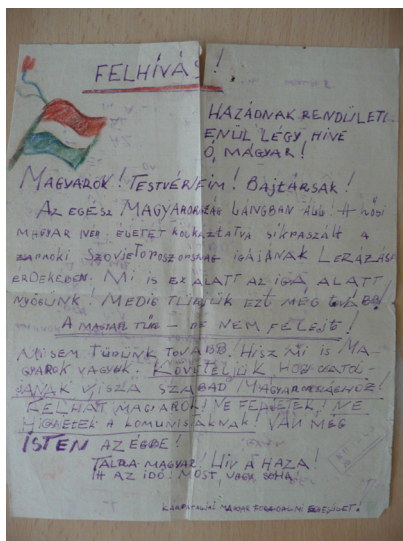 FELHÍVÁS!
HAZÁDNAK RENDÜLETL-
ENÜL LÉGY HIVE
Ó, MAGYAR!
MAGYAROK! TESTVÉREIM! BAJTÁRSAK!
AZ EGÉSZ MAGYARORSZÁG LÁNGBAN ÁLL! A HŐSI
MAGYAR NÉP ÉLETÉT KOCKÁZTATVA SIKRASZÁLT A
ZSARNOKI SZOVJETOROSZORSZÁG IGÁJÁNAK LERÁZÁSA
ÉRDEKÉBEN. MI IS EZ ALATT AZ IGA ALATT
NYÖGÜNK! MEDIG TÜRJÜK EZT MÉG TOVÁBB!
A MAGYAR TŰR – DE NEM FELEJT!
MI SEM TŰRÜNK TOVÁBB! HISZ MI IS MA-
GYAROK VAGYUK. KÖVETELJÜK HOGY CATOL-
JANAK VISZA SZABAD MAGYARORSZÁGHOZ!
FELHÁT MAGYAROK! NE FÉLJETEK, NE
HIGYJETEK A KOMUNISTÁKNAK! VAN MÉG
ISTEN AZ ÉGBE!
TALPRA MAGYAR! HIV A HAZA!
ITT AZ IDŐ: MOST, VAGY SOHA!
KÁRPÁTALJAI MAGYAR FORRADALMI